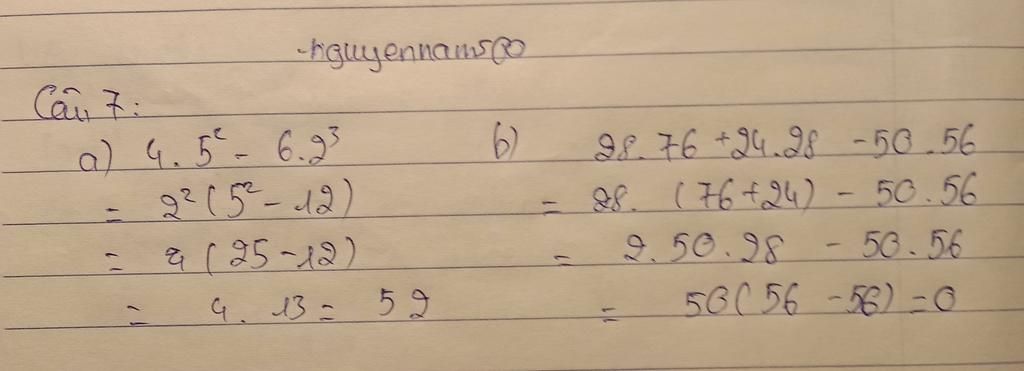 nguyennam500
Câu 7:
a) 4.5² - 6.2³ b) 28.76 + 24.28 - 50.56
= 2²(5² - 12) = 28.(76+24) - 50.56
= 4(25 - 12) = 2.50.28 - 50.56
= 4.13 = 52 = 50(56 - 56) = 0